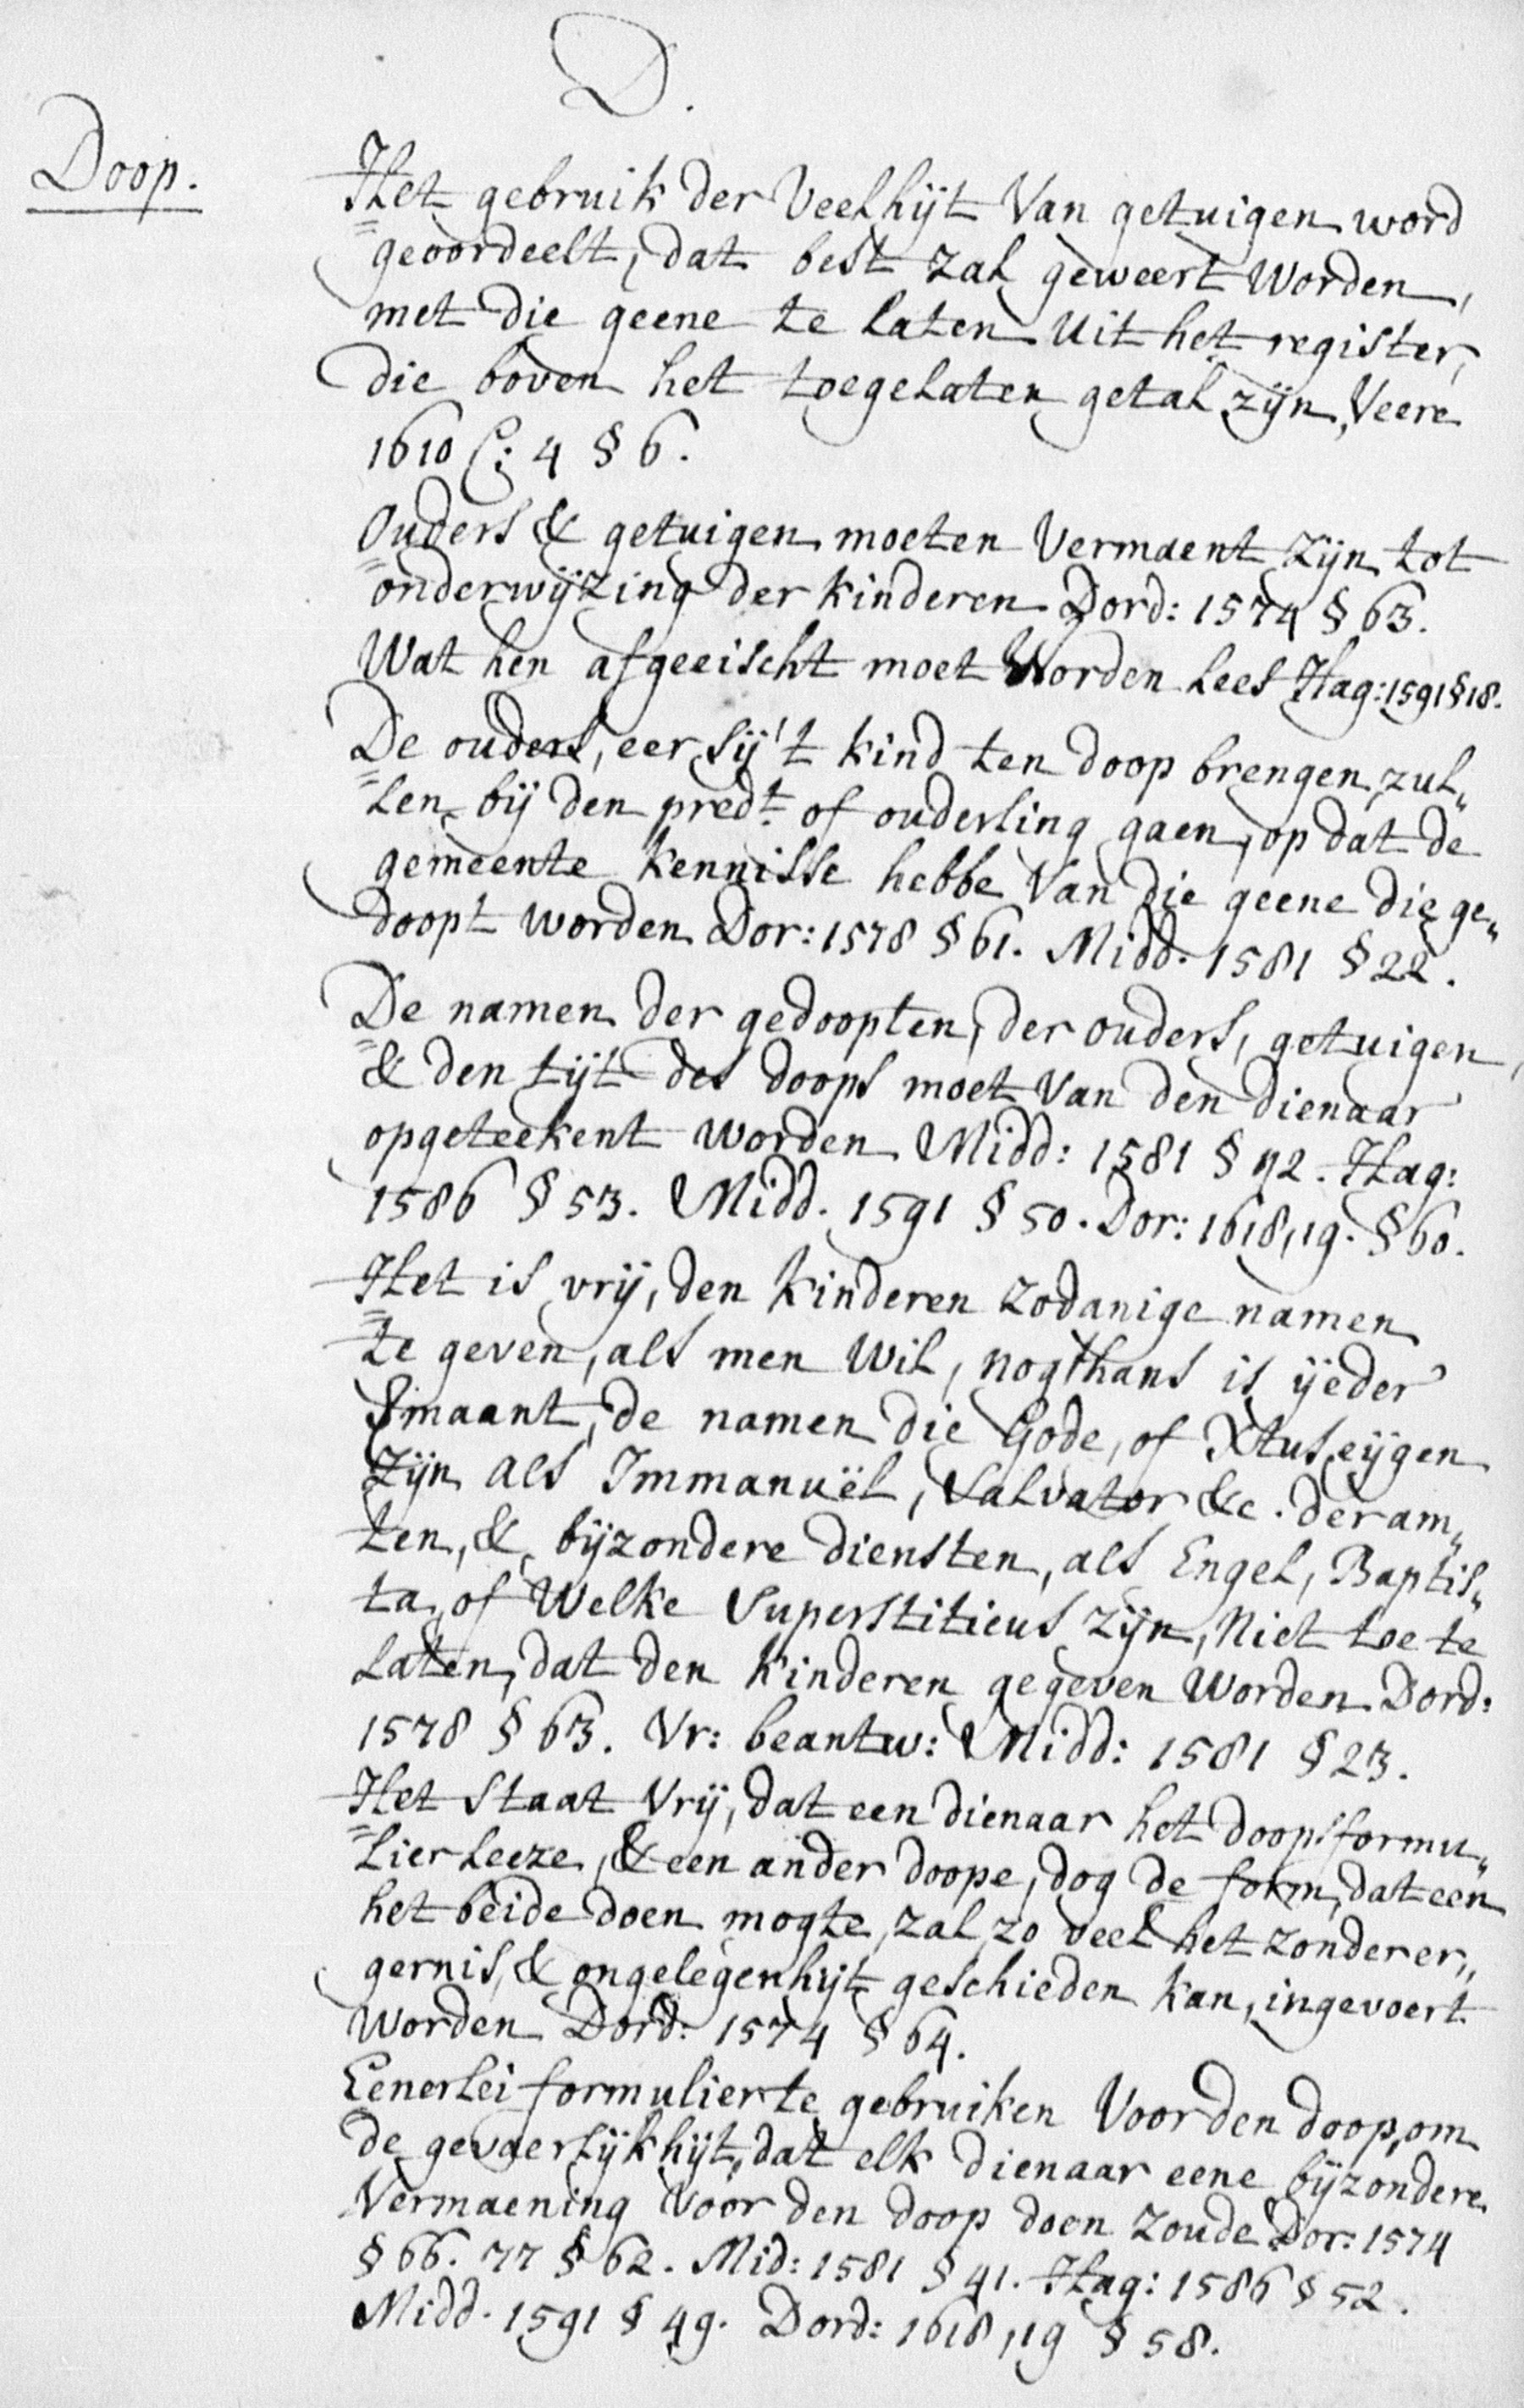 D.
Doop.
Het gebruik der Veelhijt Van getuigen word
geoordeelt, dat best zal geweert Worden,
met die geene te laten Uit het register,
die boven het toegelaten getal zijn, Veere
1610 C: 4 § 6.
Ouders & getuigen moeten Vermaent zijn tot
onderwijzing der kinderen Dord: 1574 § 63.
Wat hen afgeeischt moet Worden lees Hag: 1591 § 18.
De ouders, eer sij 't kind ten doop brengen, zul„
len bij den predt. of ouderling gaen, op dat de
gemeente kennisse hebbe Van die geene die ge„
doopt worden Dor: 1578 § 61. Midd. 1581 § 22.
De namen der gedoopten, der ouders, getuigen,
& den tijt des doops moet Van den dienaar
opgeteekent worden Midd: 1581 § 42. Hag:
1586 § 53. Midd. 1591 § 50. Dor: 1618,19. § 60.
Het is vrij, den kinderen zodanige namen
te geven, als men Wil, nogthans is ijeder
maant, de namen die Gode, of Xtus eijgen
zijn als Immanuël, Salvator &c. der am„
ten, & bijzondere diensten, als Engel, Baptis„
ta, of Welke Superstitieus zijn, Niet toe te
laten, dat den kinderen gegeven Worden Dord:
1578 § 63. Vr: beantw: Midd: 1581 § 23.
Het Staat Vrij, dat een dienaar het doopsformu„
lier leeze, & een ander doope, dog de form, dat een
het beide doen mogte, zal zo veel het zonder er„
gernis, & ongelegenhijt geschieden kan, ingevoert
Worden Dord: 1574 § 64.
Eenerlei formulier te gebruiken Voor den doop, om
de gevaerlijkhijt, dat elk dienaar eene bijzondere
Vermaening Voor den doop doen zoude Dor: 1574
§ 66. 77 § 62. Mid: 1581 § 41. Hag: 1586 § 52.
Midd. 1591 § 49. Dord: 1618,19 § 58.